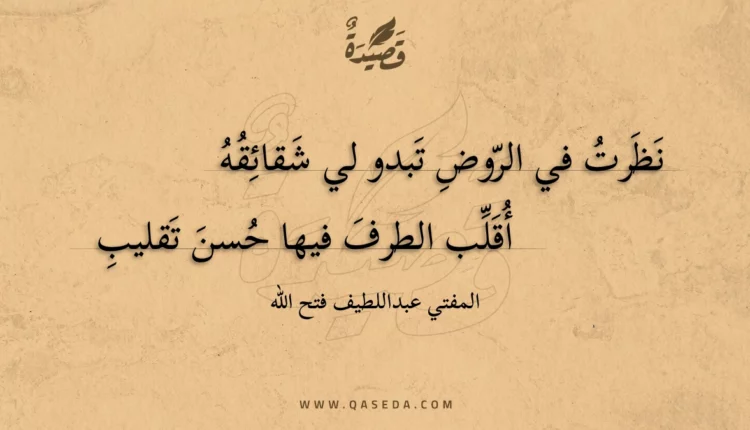 قَصِيْدَةٌ
نَظَرتُ في الرّوضِ تَبدو لي شَقائِقُهُ
أُقَلِّب الطرفَ فيها حُسنَ تَقليبِ
المفتي عبداللطيف فتح الله
WWW.QASEDA.COM